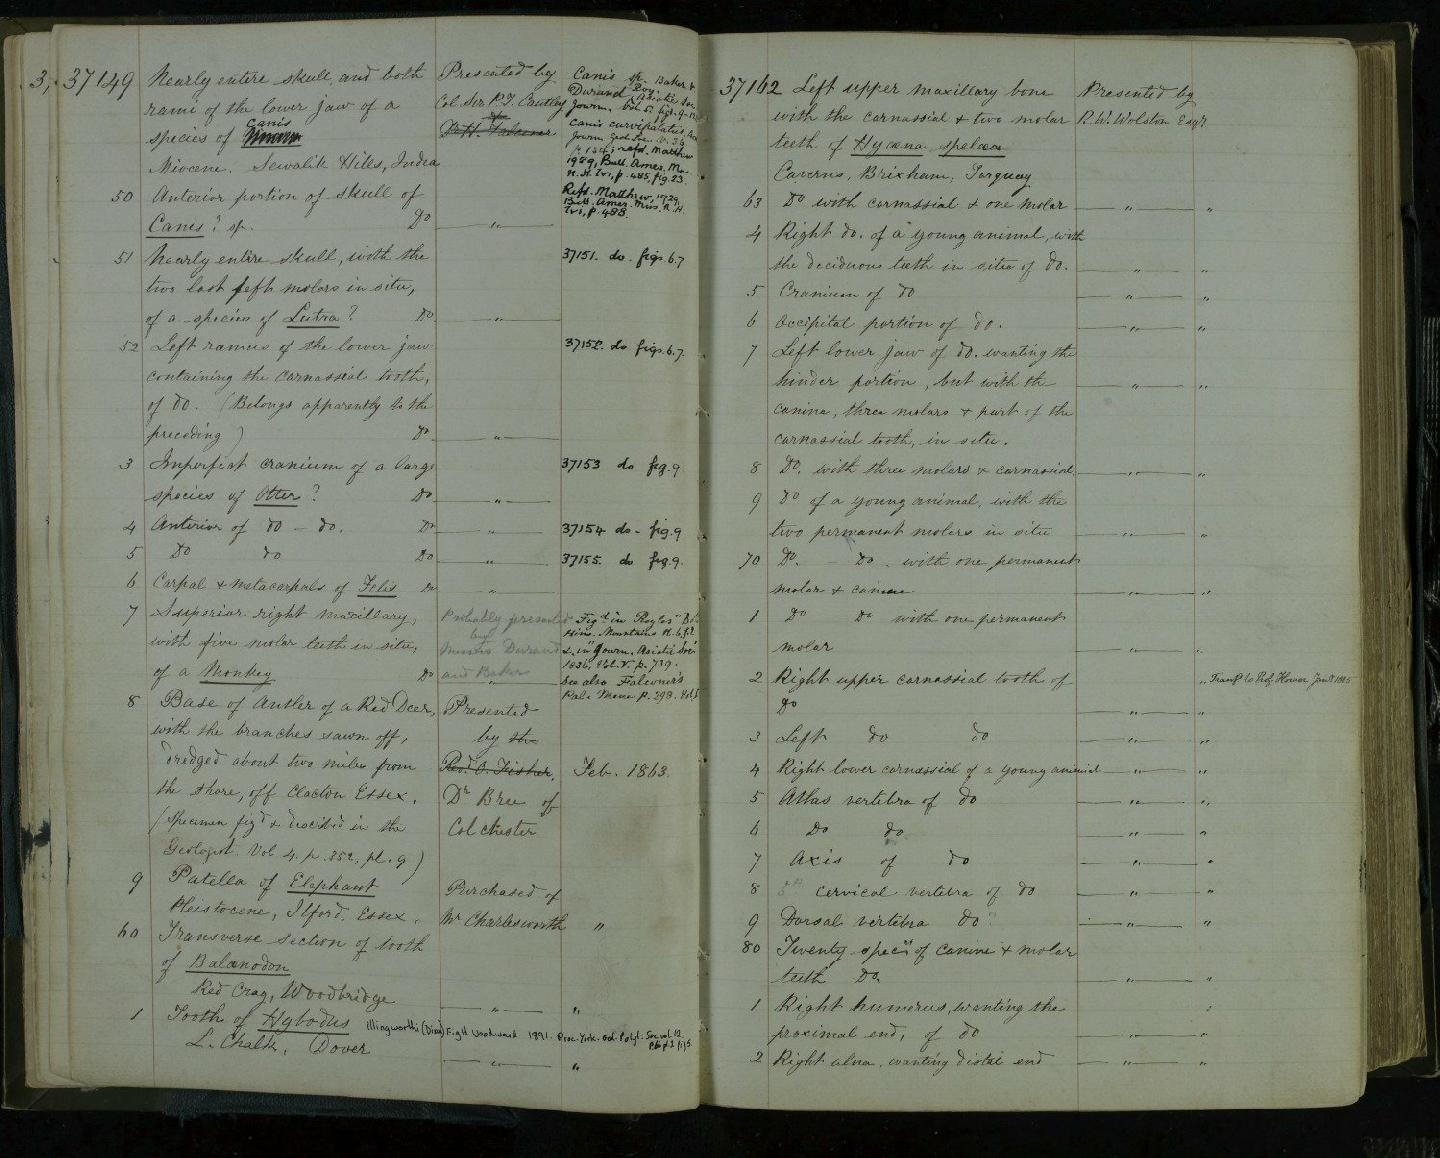 3, 37149 Nearly entire skull, and both
rami of the lower jaw of a
species of Canis
Miocene. Sewalik Hills, India
Presented by
Col. Sir P. T. Cautley
Canis sp. Baker &
Durand Roy. Asiatic Soc
Journ. Vol. 5. figs. 9-12
Canis curvipalatus
p. 184; refd. Matthew
1929, Bull. Amer. Mus.
N. H. lvi, p. 485, fig. 23.
50 Anterior portion of skull of
Canis? sp. Do
Refd. Matthew, 1929,
Bull. Amer. Mus. N. H.
lvi, p. 488.
51 Nearly entire skull, with the
two last left molars in situ,
of a species of Lutra? Do
37151. do. figs. 6.7
52 Left ramus of the lower jaw
containing the carnassial tooth,
of do. (Belongs apparently to the
preceding) Do
37152. do figs. 6.7.
3 Imperfect cranium of a large
species of Otter? Do
37153 do fig. 9
4 Anterior of do — do. Do
37154 do - fig. 9
5 Do do Do
37155. do fig. 9.
6 Carpal & metacarpals of Felis Do
7 Superior right maxillary,
with five molar teeth in situ,
of a Monkey Do
Probably presented
by
Messrs Durand
and Baker
Figd in Royles
Him. Mountains
& in Journ. Asiatic Soc
1836, Vol. V. p. 739.
See also Falconer's
Pal. Mem p. 298.
8 Base of Antler of a Red Deer,
with the branches sawn off,
dredged about two miles from
the shore, off Clacton Essex.
(Specimen figd & describd in the
Geologist. Vol 4. p. 352, pl. 9)
Presented
by the
Revd. O. Fisher.
Dr Bree of
Colchester
Feb. 1863.
9 Patella of Elephant
Pleistocene, Ilford, Essex.
Purchased of
Mr Charlesworth "
60 Transverse section of tooth
of Balanodon
Red Crag, Woodbridge
" "
1 Tooth of Hybodus illingworthi (Dixon) Figd Woodward 1891. Proc. York. Geol. Polyt. Soc. vol. 12
L. Chalk, Dover
" "
37162 Left upper maxillary bone
with the carnassial & two molar
teeth of Hyæna spelæa
Caverns, Brixham, Torquay
Presented by
R. W. Wolston Esqr
63 Do with carnassial & one molar " "
4 Right do. of a young animal, with
the deciduous teeth in situ of do. " "
5 Cranium of do " "
6 Occipital portion of do. " "
7 Left lower jaw of do. wanting the
hinder portion, but with the " "
canine, three molars & part of the
carnassial tooth, in situ.
8 Do. with three molars & carnassial " "
9 Do of a young animal, with the
two permanent molars in situ " "
70 Do. — Do. with one permanent
molar & canine " "
1 Do Do with one permanent
molar " "
2 Right upper carnassial tooth of
Do " "
" Transfd to Prof Flower Jany 1885
3 Left do do " "
4 Right lower carnassial of a young animal " "
5 Atlas vertebra of do " "
6 Do do " "
7 Axis of do " "
8 5th cervical vertebra of do " "
9 Dorsal vertebra do? " "
80 Twenty specns of canine & molar
teeth Do " "
1 Right humerus, wanting the
proximal end, of do " "
2 Right ulna, wanting distal end " "